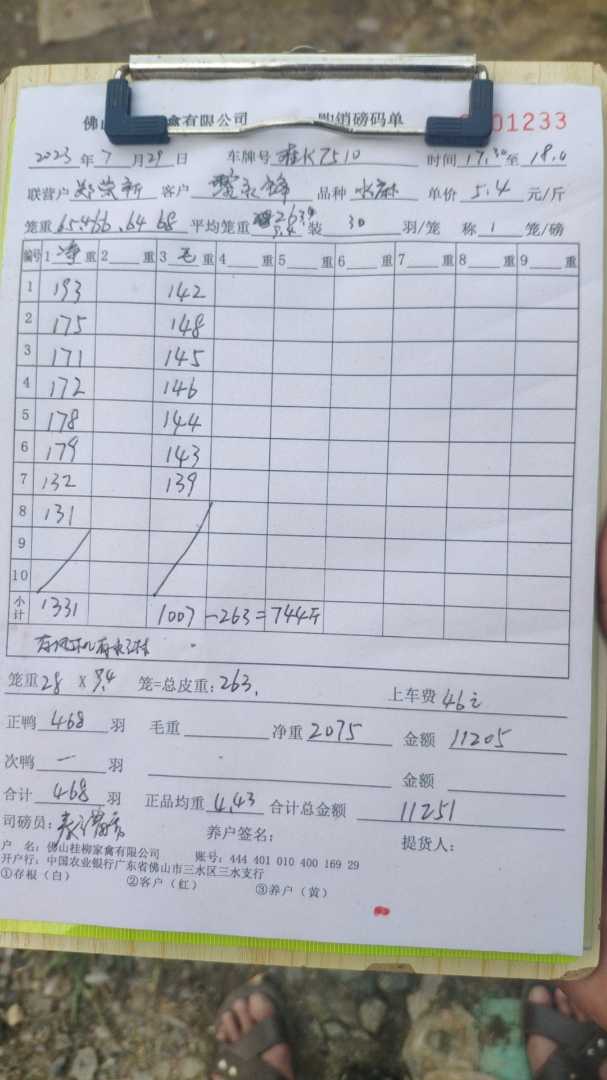 佛山 禽有限公司 购销磅码单 01233
2023年7月29日 车牌号 桂K7510 时间17.30至18.0
联营户 客户 品种 水麻 单价 5.4 元/斤
笼重 65.4 66.64 68 平均笼重 263 9.4 装 30 羽/笼 称 1 笼/磅
编号 1 净 重 2 重 3 毛 重 4 重 5 重 6 重 7 重 8 重 9 重
1 193 142
2 175 148
3 171 145
4 172 146
5 178 144
6 179 143
7 132 139
8 131
9
10
小计 1331 1007-263=744斤
笼重28 x 9.4 笼=总皮重:263. 上车费 46元
正鸭 468 羽 毛重 净重 2075 金额 11205
次鸭 一 羽 金额
合计 468 羽 正品均重 4.43 合计总金额 11251
司磅员: 养户签名: 提货人:
户 名:佛山桂柳家禽有限公司 账号:444 401 010 400 169 29
开户行:中国农业银行广东省佛山市三水区三水支行
①存根(白) ②客户(红) ③养户(黄)